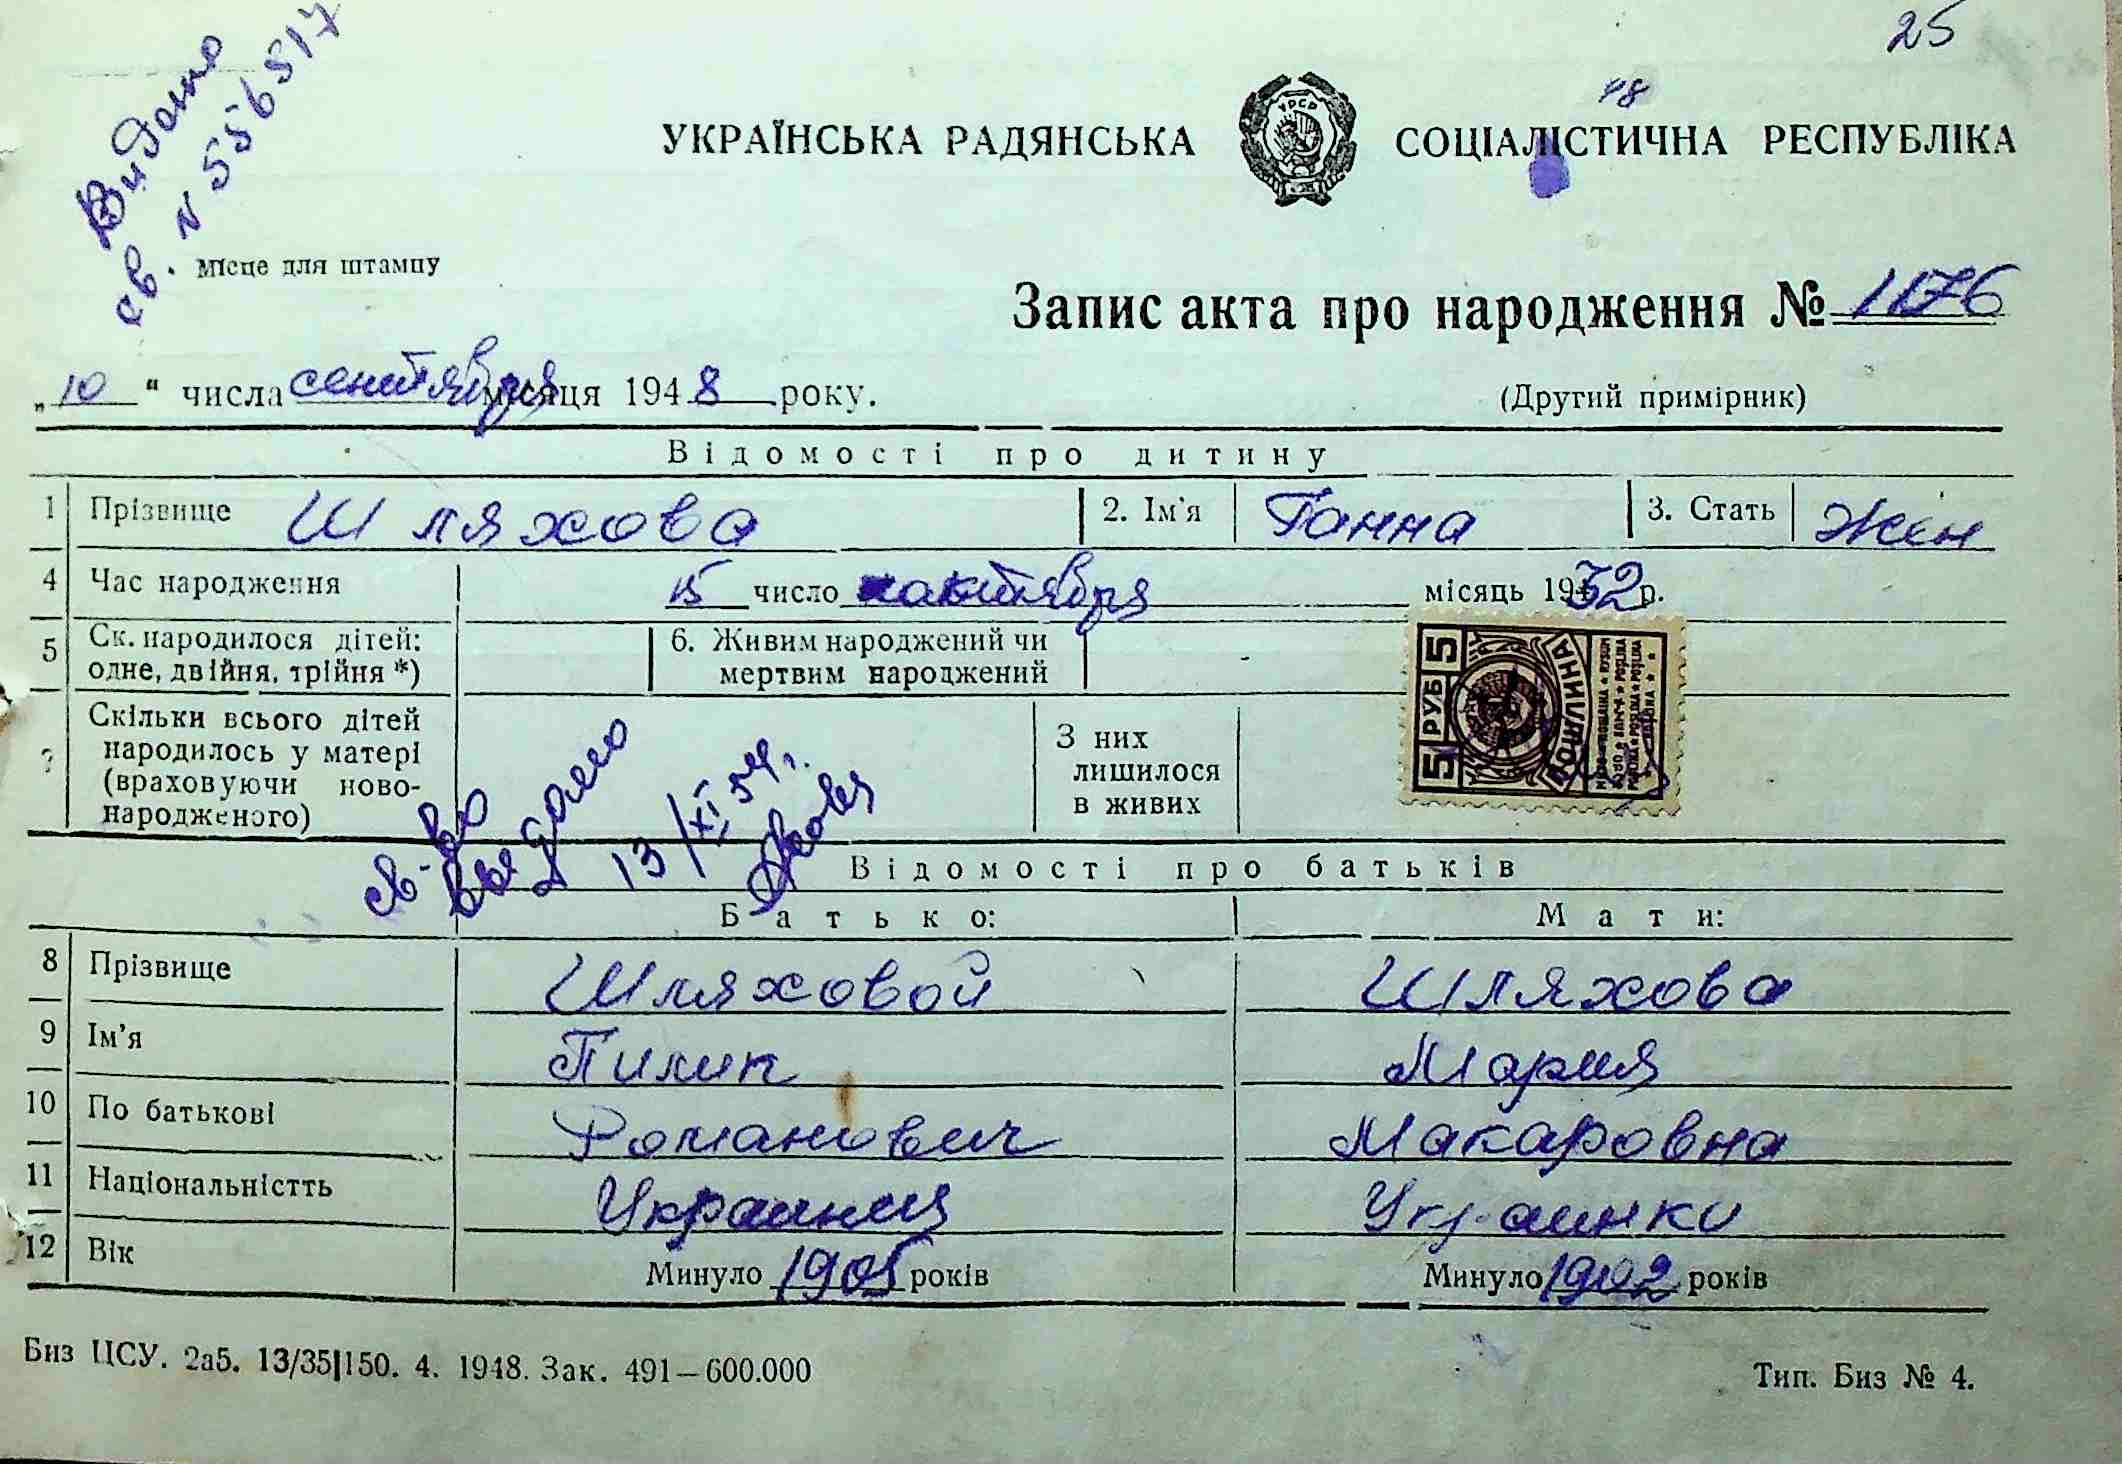 25
18
Видано
св. N 556517
УКРАЇНСЬКА РАДЯНСЬКА СОЦІАЛІСТИЧНА РЕСПУБЛІКА
УРСР
Місце для штампу
Запис акта про народження № 1176
„10“ числа сентября місяця 1948 року.
(Другий примірник)
Відомості про дитину
1 Прізвище Шляхова 2. Ім'я Ганна 3. Стать жен
4 Час народження 15 число октября місяць 1932 р.
5 Ск. народилося дітей: одне, двійня, трійня *) 6. Живим народжений чи мертвим народжений -
7 Скільки всього дітей народилось у матері (враховуючи новонародженого) З них лишилося в живих
5 РУБ 5
ПОШЛИНА
св-во выдано 13/XI 54г.
Відомості про батьків
Батько: Мати:
8 Прізвище Шляховой Шляхова
9 Ім'я Пилип Мария
10 По батькові Романович Макаровна
11 Національністть Украинец Украинки
12 Вік Минуло 1905 років Минуло 1902 років
Биз ЦСУ. 2а5. 13/35|150. 4. 1948. Зак. 491—600.000
Тип. Биз № 4.